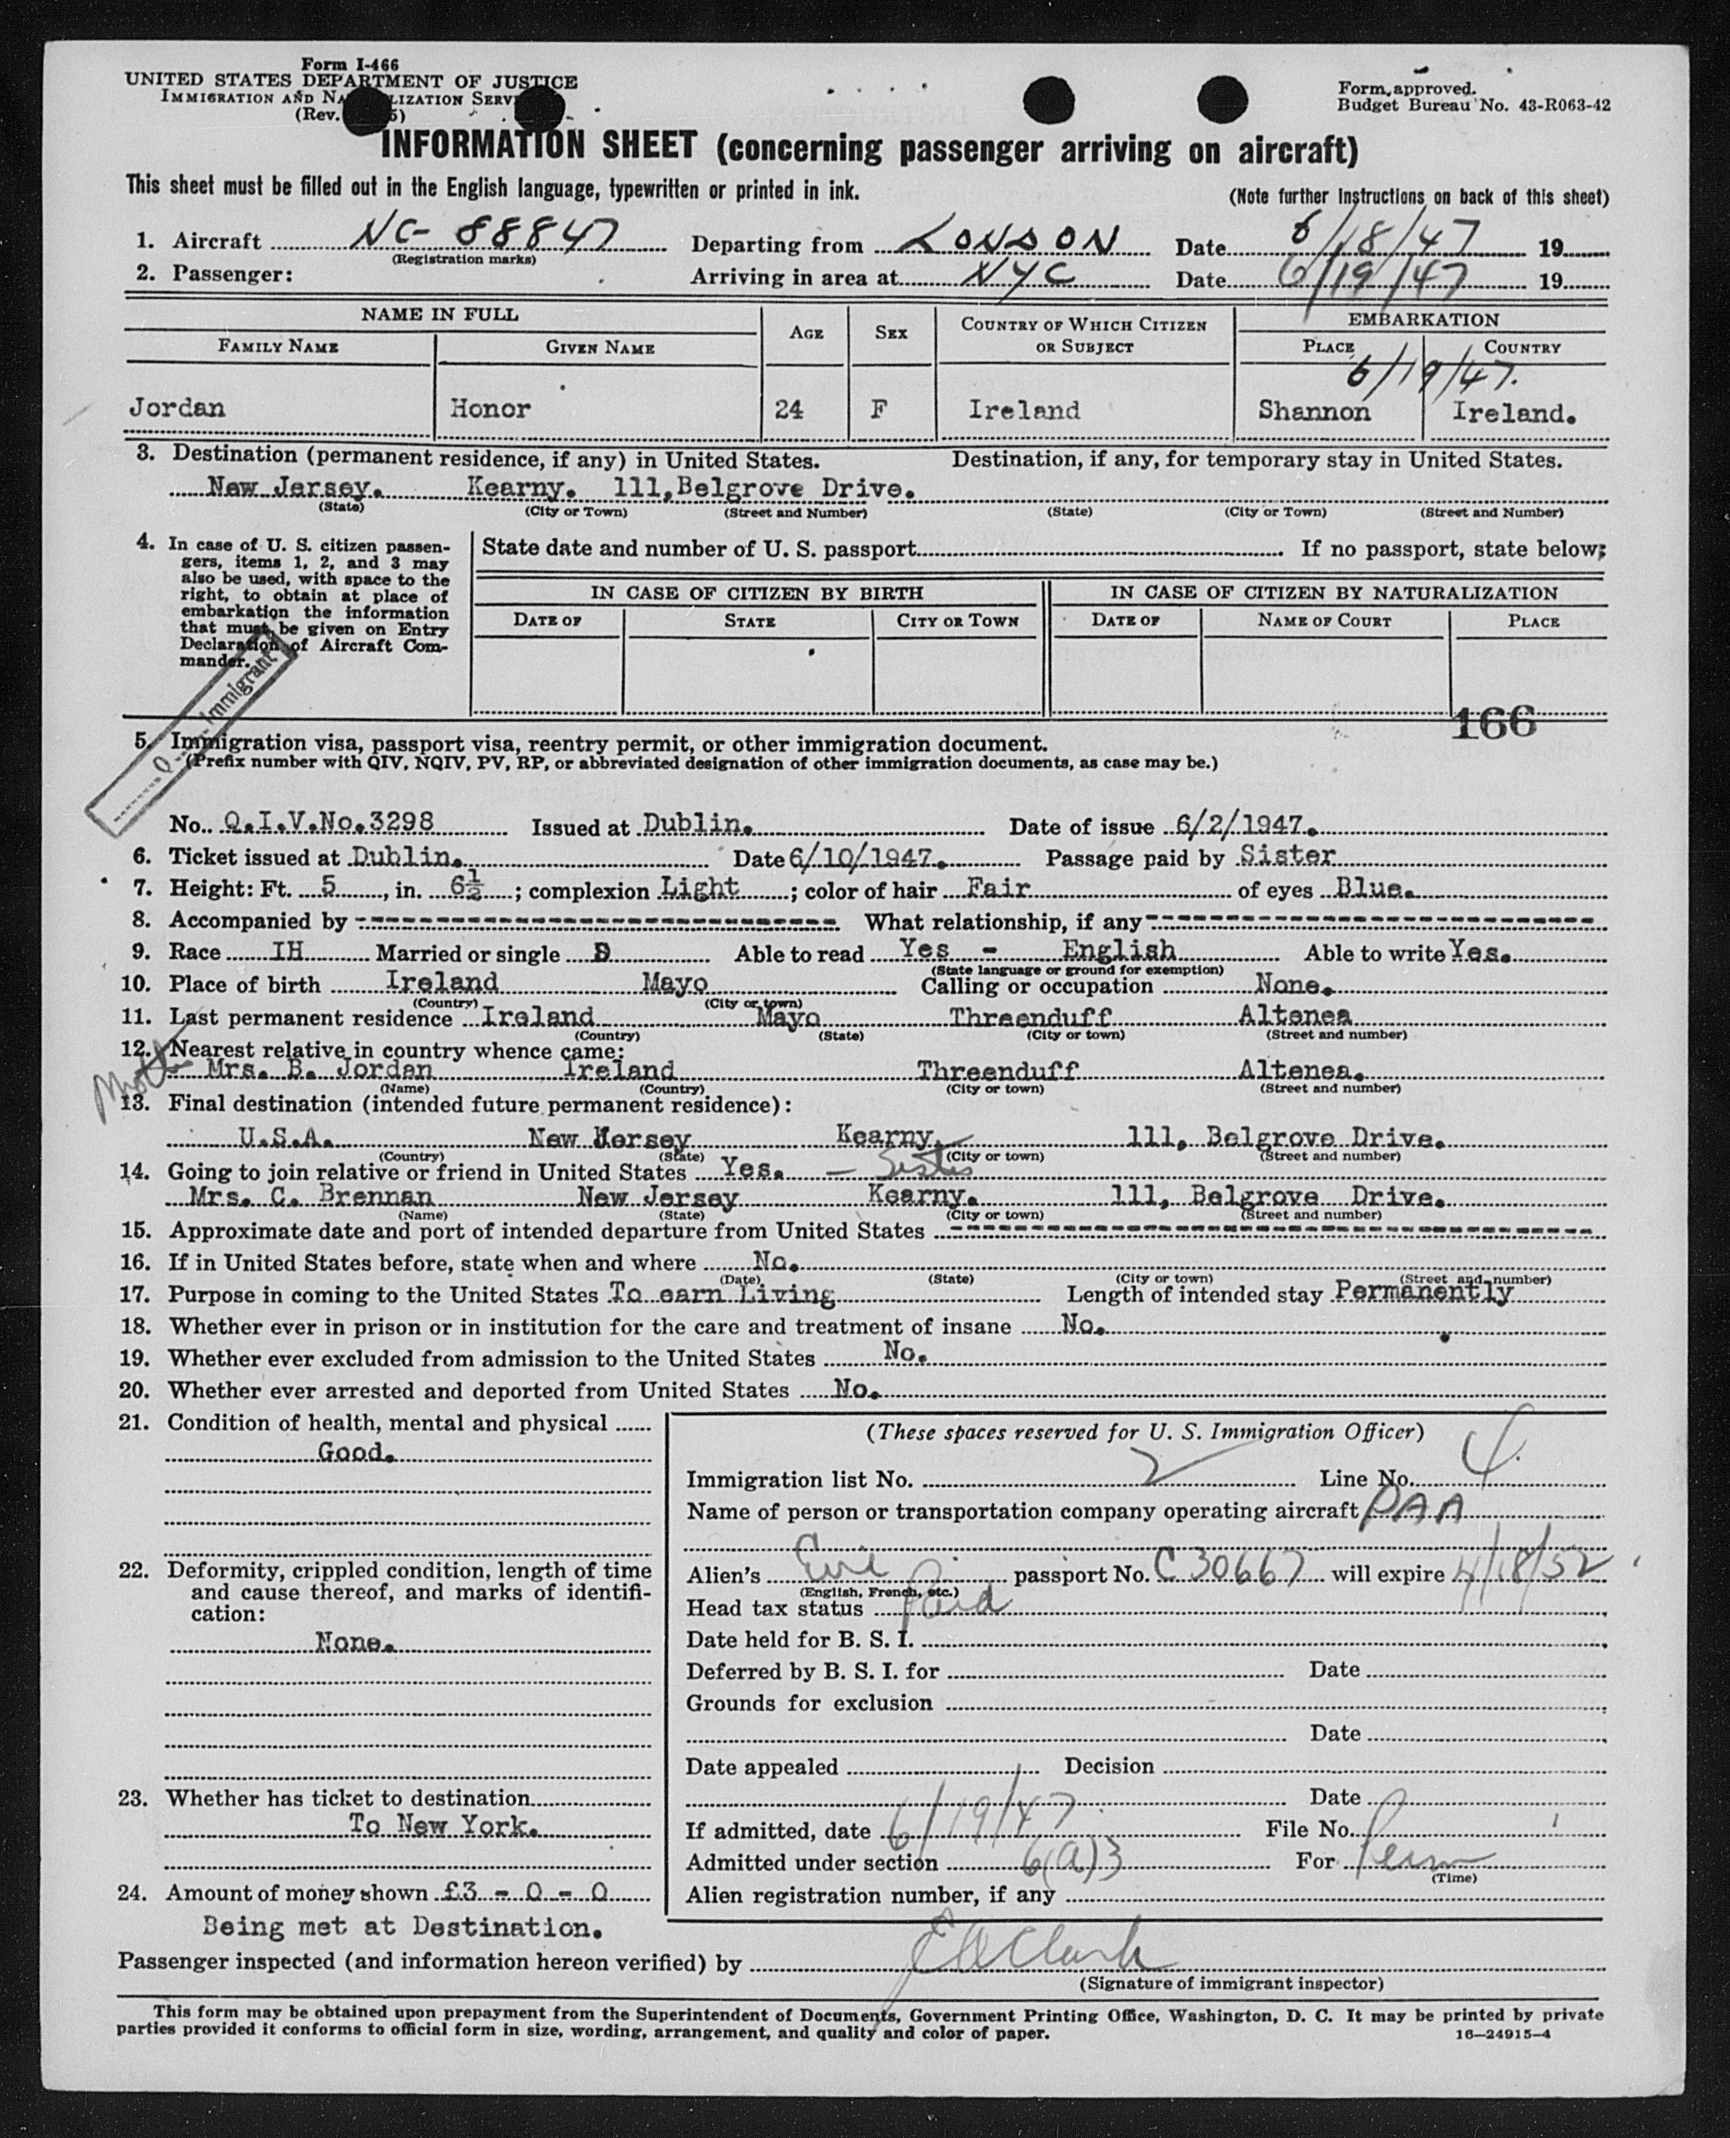 Form I-466
UNITED STATES DEPARTMENT OF JUSTICE
IMMIGRATION AND NATURALIZATION SERV
(Rev. 5)
Form approved.
Budget Bureau No. 43-R063-42
INFORMATION SHEET (concerning passenger arriving on aircraft)
This sheet must be filled out in the English language, typewritten or printed in ink.
(Note further instructions on back of this sheet)
1. Aircraft NC- 88847 Departing from LONDON Date 6/18/47 19
(Registration marks)
2. Passenger: Arriving in area at NYC Date 6/19/47 19
NAME IN FULL AGE SEX COUNTRY OF WHICH CITIZEN OR SUBJECT EMBARKATION
FAMILY NAME GIVEN NAME PLACE COUNTRY
6/19/47.
Jordan Honor 24 F Ireland Shannon Ireland.
3. Destination (permanent residence, if any) in United States. Destination, if any, for temporary stay in United States.
New Jersey. Kearny. 111, Belgrove Drive.
(State) (City or Town) (Street and Number) (State) (City or Town) (Street and Number)
4. In case of U. S. citizen passen-
gers, items 1, 2, and 3 may
also be used, with space to the
right, to obtain at place of
embarkation the information
that must be given on Entry
Declaration of Aircraft Com-
mander.
State date and number of U. S. passport If no passport, state below:
IN CASE OF CITIZEN BY BIRTH IN CASE OF CITIZEN BY NATURALIZATION
DATE OF STATE CITY OR TOWN DATE OF NAME OF COURT PLACE
Q Immigrant
166
5. Immigration visa, passport visa, reentry permit, or other immigration document.
(Prefix number with QIV, NQIV, PV, RP, or abbreviated designation of other immigration documents, as case may be.)
No. Q.I.V.No.3298 Issued at Dublin. Date of issue 6/2/1947.
6. Ticket issued at Dublin. Date 6/10/1947. Passage paid by Sister
7. Height: Ft. 5, in. 6½; complexion Light; color of hair Fair of eyes Blue.
8. Accompanied by ---- What relationship, if any ----
9. Race IH Married or single S Able to read Yes - English Able to write Yes.
(State language or ground for exemption)
10. Place of birth Ireland Mayo Calling or occupation None.
(Country) (City or town)
11. Last permanent residence Ireland Mayo Threenduff Altenea
(Country) (State) (City or town) (Street and number)
12. Nearest relative in country whence came:
Moth Mrs. B. Jordan Ireland Threenduff Altenea.
(Name) (Country) (City or town) (Street and number)
13. Final destination (intended future permanent residence):
U.S.A. New Jersey Kearny, 111, Belgrove Drive.
(Country) (State) (City or town) (Street and number)
14. Going to join relative or friend in United States Yes. - Sister
Mrs. C. Brennan New Jersey Kearny. 111, Belgrove Drive.
(Name) (State) (City or town) (Street and number)
15. Approximate date and port of intended departure from United States ----
16. If in United States before, state when and where No.
(Date) (State) (City or town) (Street and number)
17. Purpose in coming to the United States To earn Living Length of intended stay Permanently
18. Whether ever in prison or in institution for the care and treatment of insane No.
19. Whether ever excluded from admission to the United States No.
20. Whether ever arrested and deported from United States No.
21. Condition of health, mental and physical
Good.
22. Deformity, crippled condition, length of time
and cause thereof, and marks of identifi-
cation:
None.
23. Whether has ticket to destination
To New York.
24. Amount of money shown £3 - 0 - 0
Being met at Destination.
(These spaces reserved for U. S. Immigration Officer)
Immigration list No. 2 Line No. 4
Name of person or transportation company operating aircraft PAA
Alien's Eire passport No. C 30667 will expire 4/18/52
(English, French, etc.)
Head tax status Paid
Date held for B. S. I.
Deferred by B. S. I. for Date
Grounds for exclusion
Date
Date appealed Decision
Date
If admitted, date 6/19/47 File No.
Admitted under section 6(a)3 For Perm
(Time)
Alien registration number, if any
Passenger inspected (and information hereon verified) by E A Clark
(Signature of immigrant inspector)
This form may be obtained upon prepayment from the Superintendent of Documents, Government Printing Office, Washington, D. C. It may be printed by private
parties provided it conforms to official form in size, wording, arrangement, and quality and color of paper. 16-24915-4